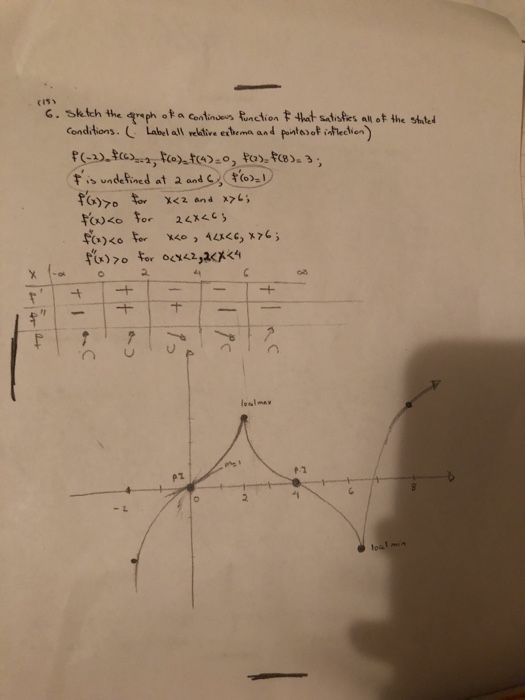 (15)
6. Sketch the graph of a continuous function f that satisfies all of the stated
conditions. ( Label all relative extrema and points of inflection)
f(-2)=f(6)=-2, f(0)=f(4)=0, f(2)=f(8)=3;
f' is undefined at 2 and 6, f'(0)=1
f'(x)>0 for x<2 and x>6;
f'(x)<0 for 2<x<6;
f''(x)<0 for x<0, 4<x<6, x>6;
f''(x)>0 for 0<x<2, 2<x<4
x -∞ 0 2 4 6 ∞
f' + + - - +
f'' - + + - -
f
local max
m=1
P.I
P.I
-2 0 2 4 6 8
local min